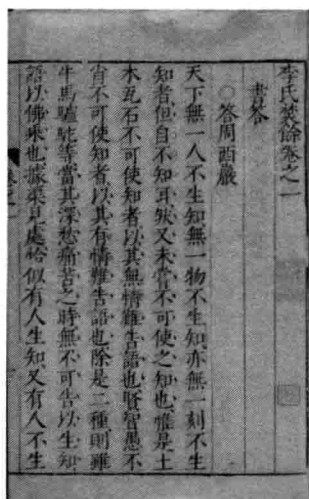 李氏焚餘卷之一
書荅
○答周西巖
天下無一人不生知無一物不生知亦無一刻不生
知者但自不知耳然又未嘗不可使之知也惟是土
木瓦石不可使知者以其無情難告語也賢智愚不
肖不可使知者以其有情難告語也除是二種則雖
牛馬驢駝等當其深愁痛苦之時無不可告以生知
語以佛乘也據渠見處恰似有人生知又有人不生